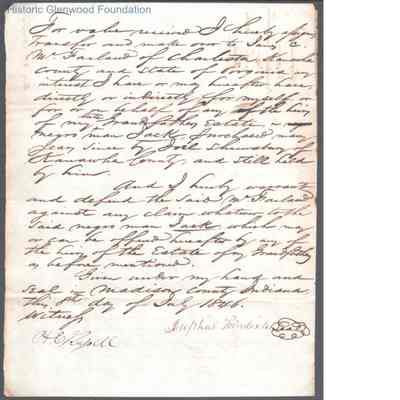 Historic Glenwood Foundation
For value received I hereby assign
transfer and make over to James C.
McFarland of Charleston Kanawha
County and State of Virginia
interest I have or may hereafter have
directly or indirectly for myself or
for the of any of the heirs
of my Grandfathers Estate in
negro man Jack purchased many
years since by Joel Shrewsbury of
Kanawha County, and still held
by him.
And I hereby warrant
and defend the said McFarland
against any claim whatsoever to the
said negro man Jack which may
or can be offered hereafter by any of
the heirs of the Estate of my Grandfather
as before mentioned.
Given under my hand and
seal in Madison County Indiana
this 8th day of July 1846.
Witness
Josephus
Seal